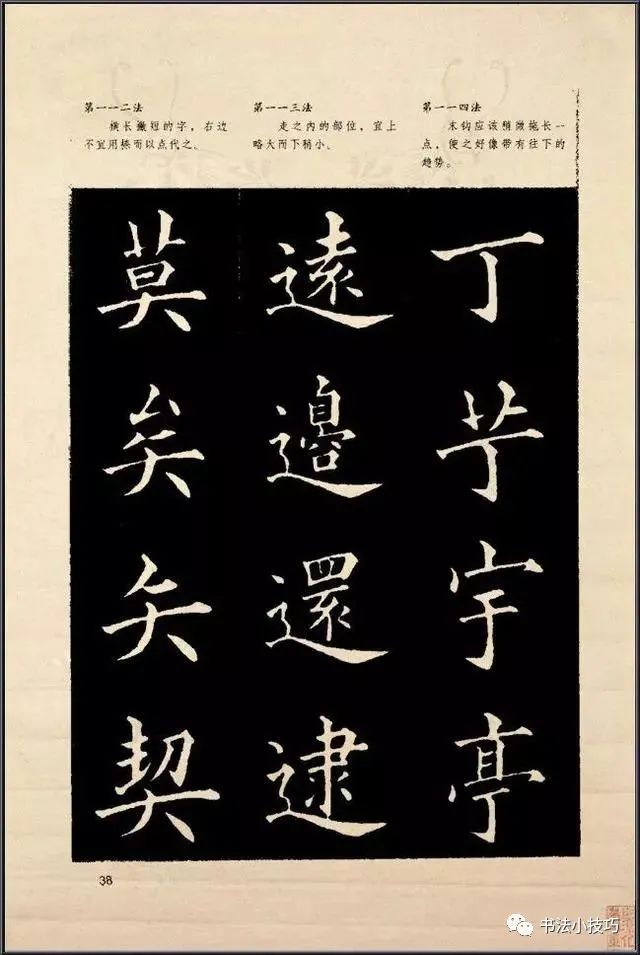 第一一二法
横长撇短的字，右边
不宜用捺而以点代之。
第一一三法
走之内的部位，宜上
略大而下稍小。
第一一四法
末钩应该稍微拖长一
点，使之好像带有往下的
趋势。
莫
矣
矢
契
遠
邊
還
逮
丁
艼
宇
亭
38
书法小技巧